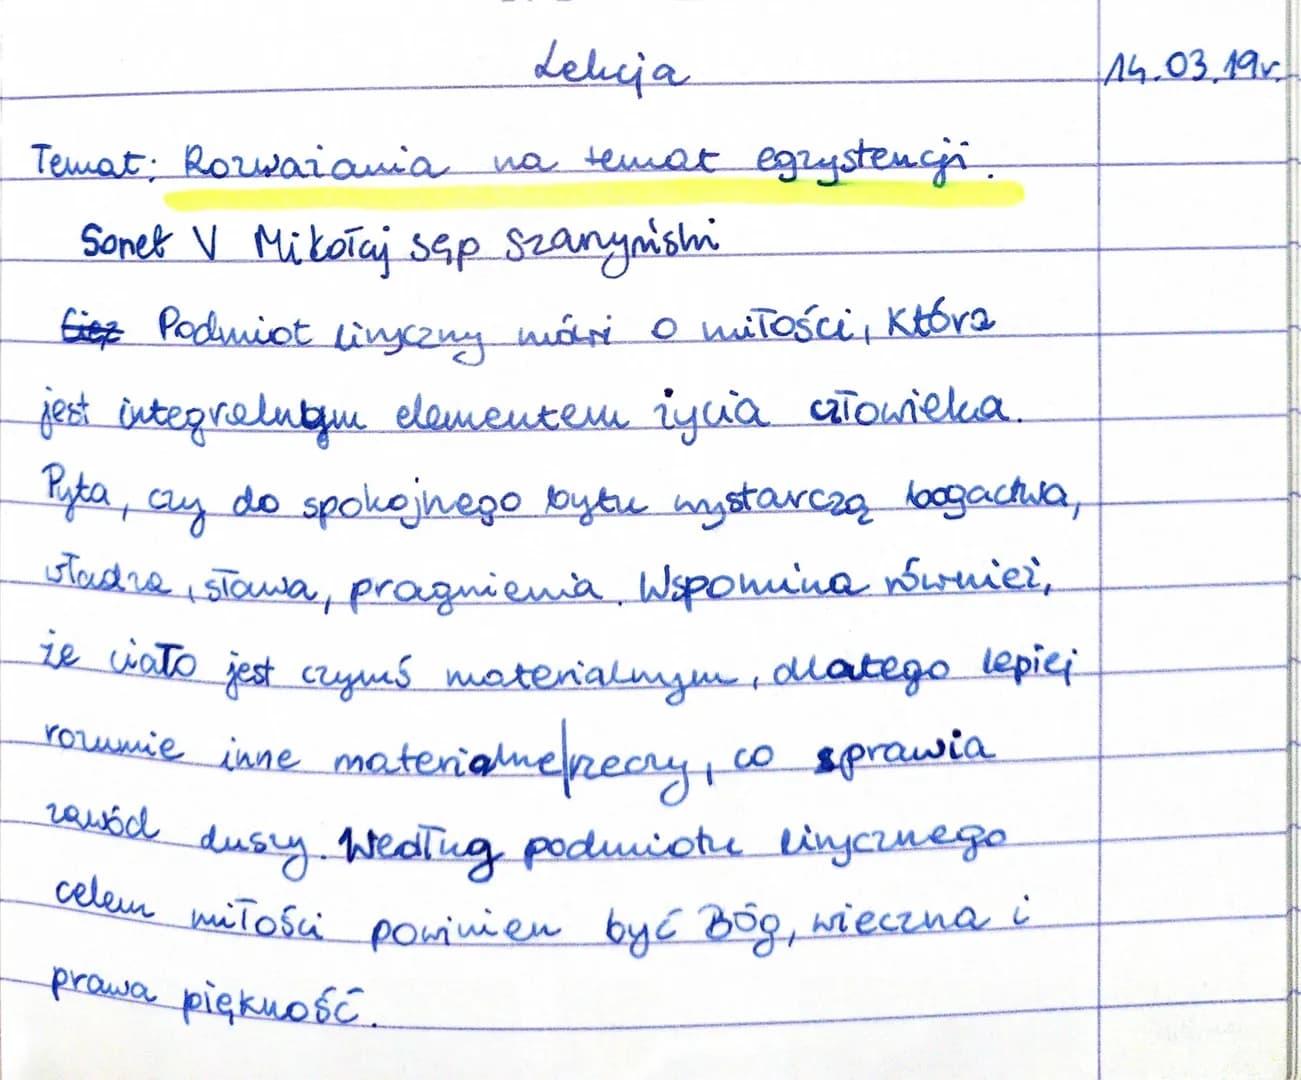 Lekcja 14.03.19r.
Temat: Rozważania na temat egzystencji.
Sonet V Mikołaj Sęp Szarzyński
Podmiot liryczny mówi o miłości, która
jest integralnym elementem życia człowieka.
Pyta, czy do spokojnego bytu wystarczą bogactwa,
władza, sława, pragnienia. Wspomina również,
że ciało jest czymś materialnym, dlatego lepiej
rozumie inne materialne rzeczy, co sprawia
zawód duszy. Według podmiotu lirycznego
celem miłości powinien być Bóg, wieczna i
prawa piękność.